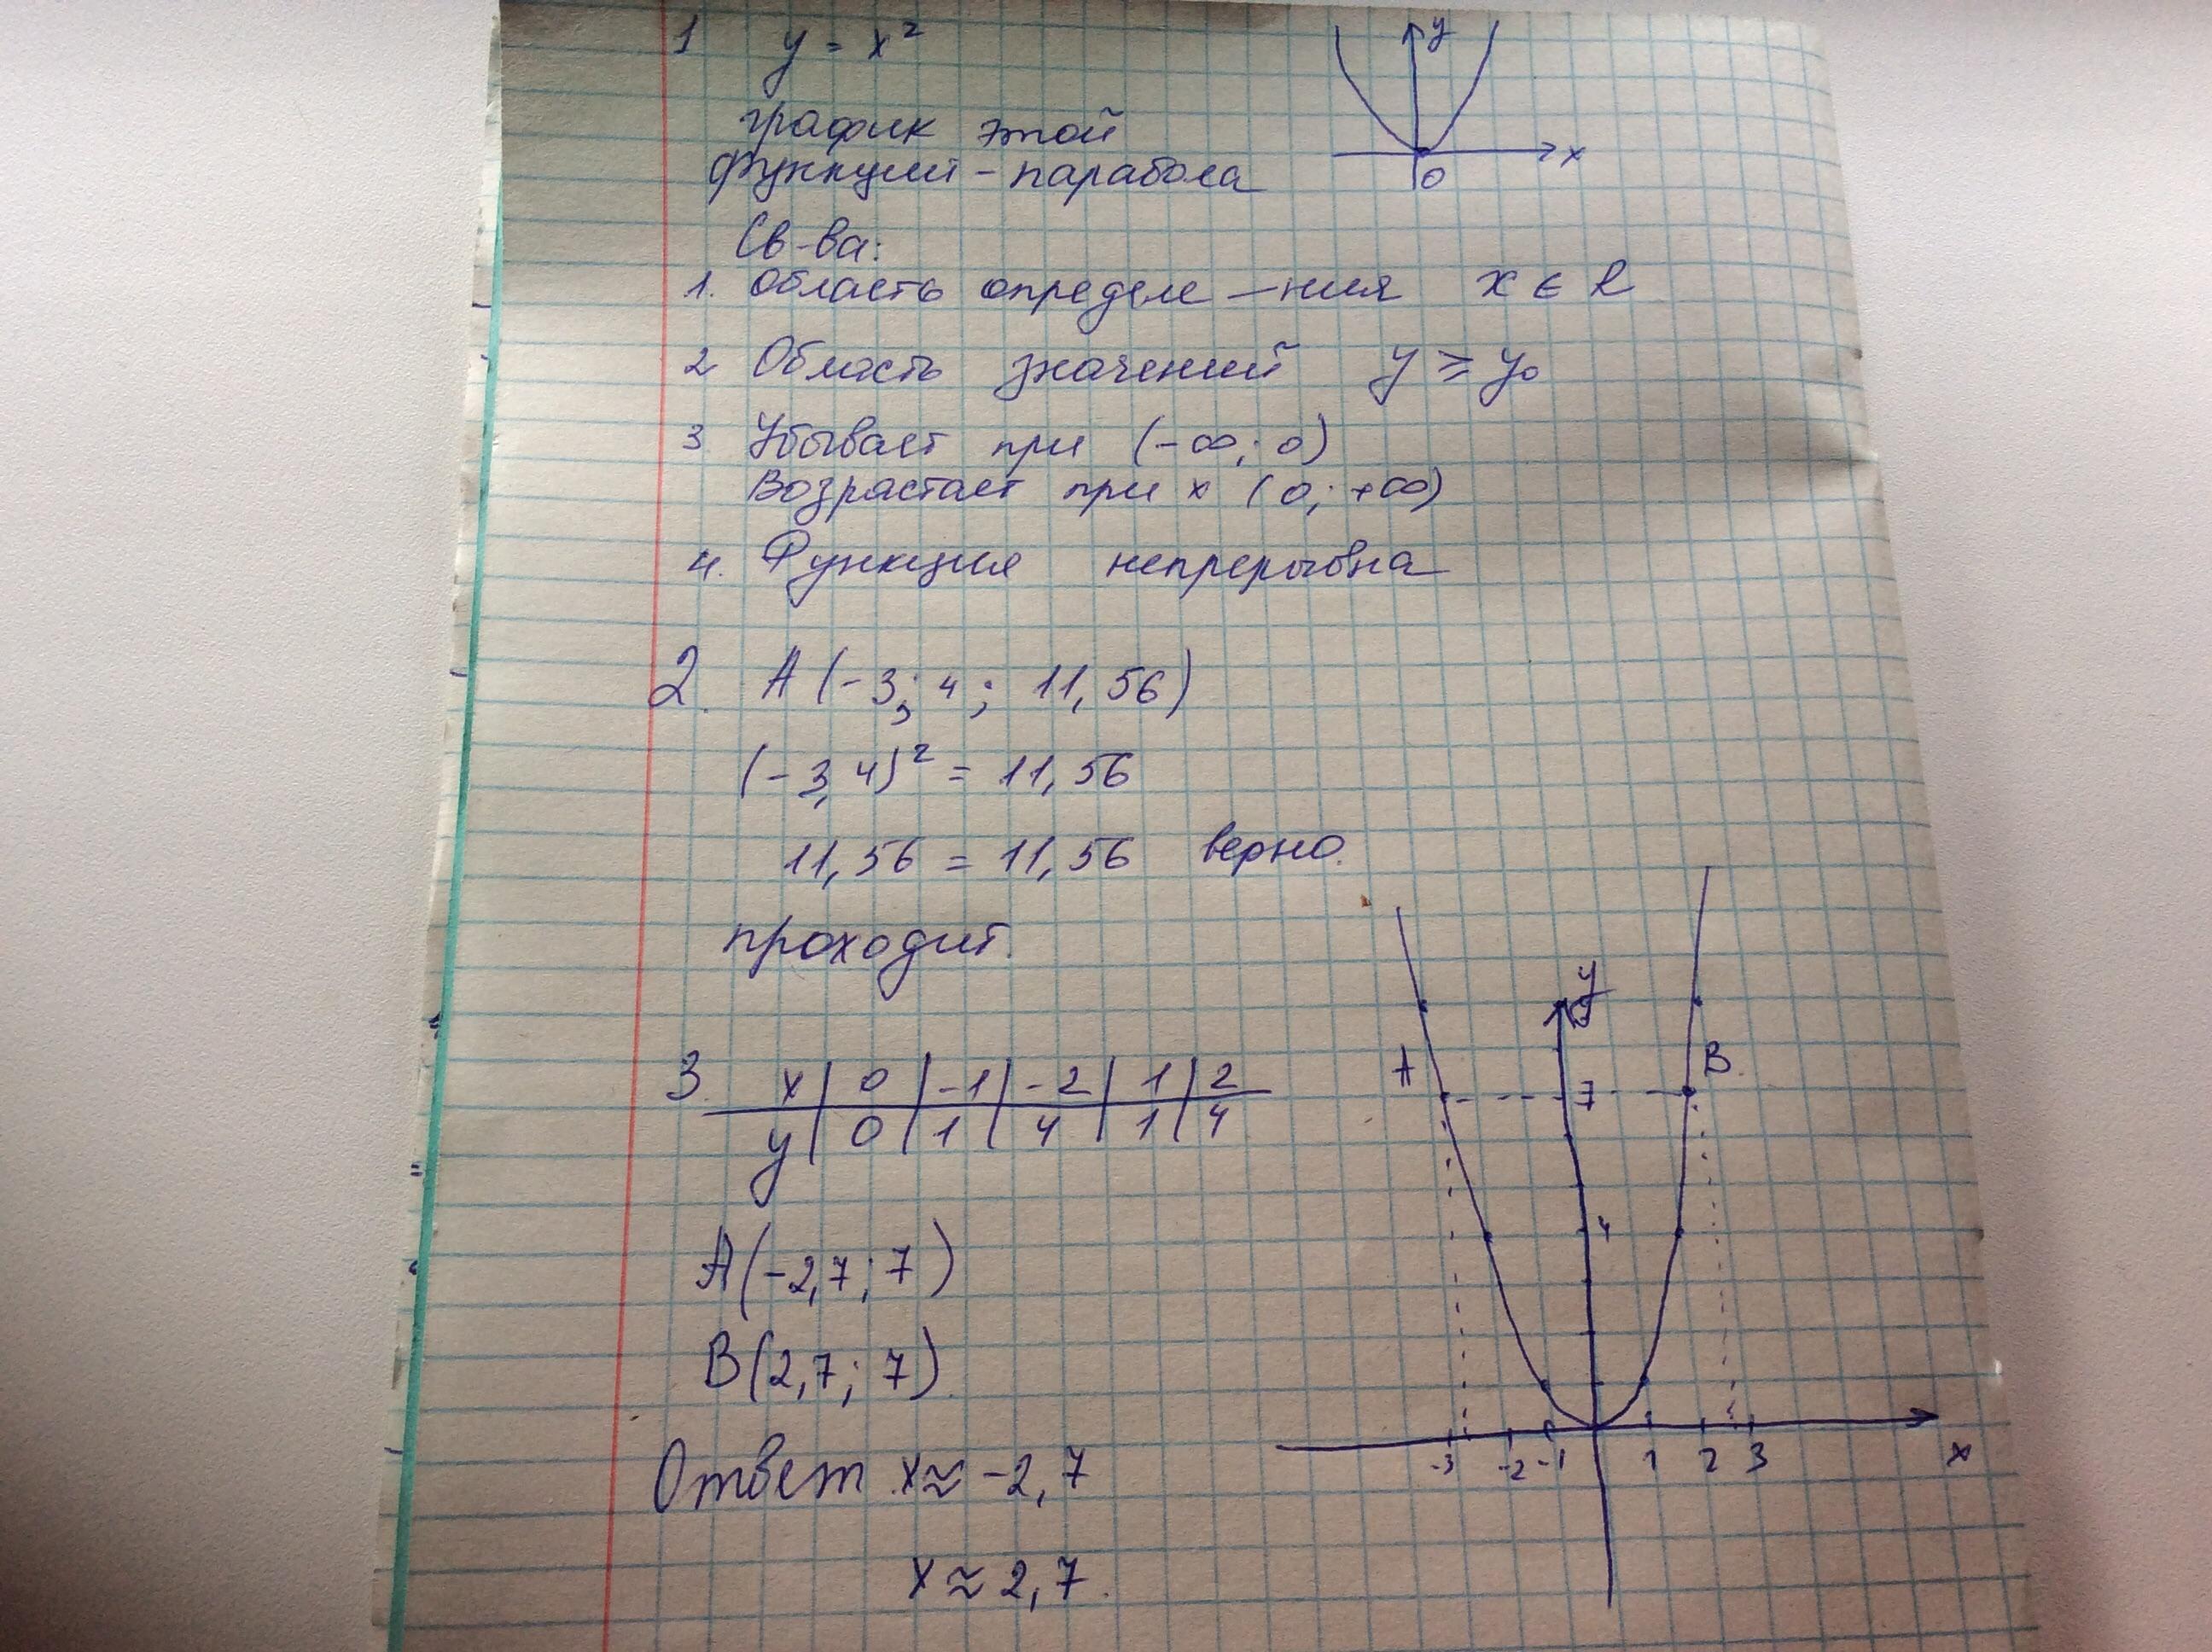 1 y = x²
y
график этой
функций - парабола
x
0
Св-ва:
1. Область определе-ния x ∈ R
2 Область значений y ≥ y₀
3 Убывает при (-∞; 0)
Возрастает при x (0; +∞)
4. Функция непрерывна
2. A (-3,4; 11,56)
(-3,4)² = 11,56
11,56 = 11,56 верно.
проходит.
3. x | 0 | -1 | -2 | 1 | 2
y | 0 | 1 | 4 | 1 | 4
y
9
A
7
B
4
A(-2,7; 7)
B(2,7; 7)
-3 -2 -1 1 2 3 x
Ответ x ≈ -2,7
x ≈ 2,7.